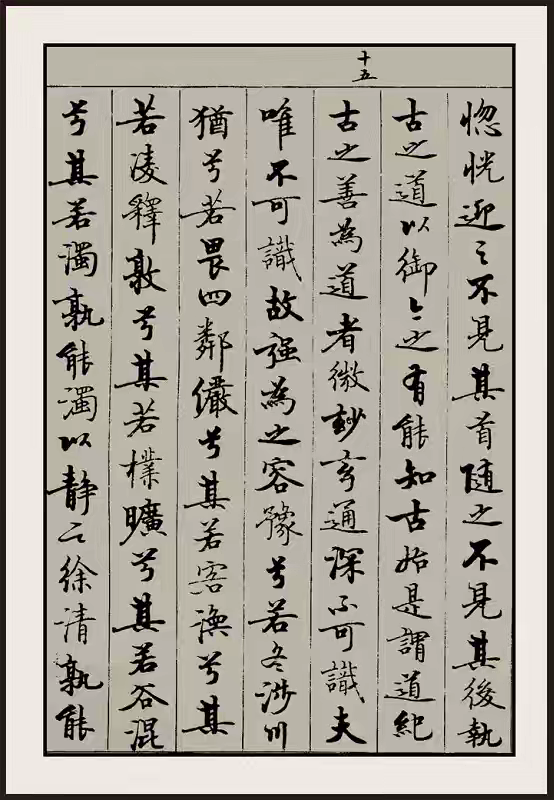 惚恍迎之不見其首隨之不見其後執
古之道以御今之有能知古始是謂道紀
十五
古之善為道者微玅玄通深不可識夫
唯不可識故强為之容豫兮若冬涉川
猶兮若畏四鄰儼兮其若客渙兮其
若凌釋敦兮其若樸曠兮其若谷混
兮其若濁孰能濁以静之徐清孰能